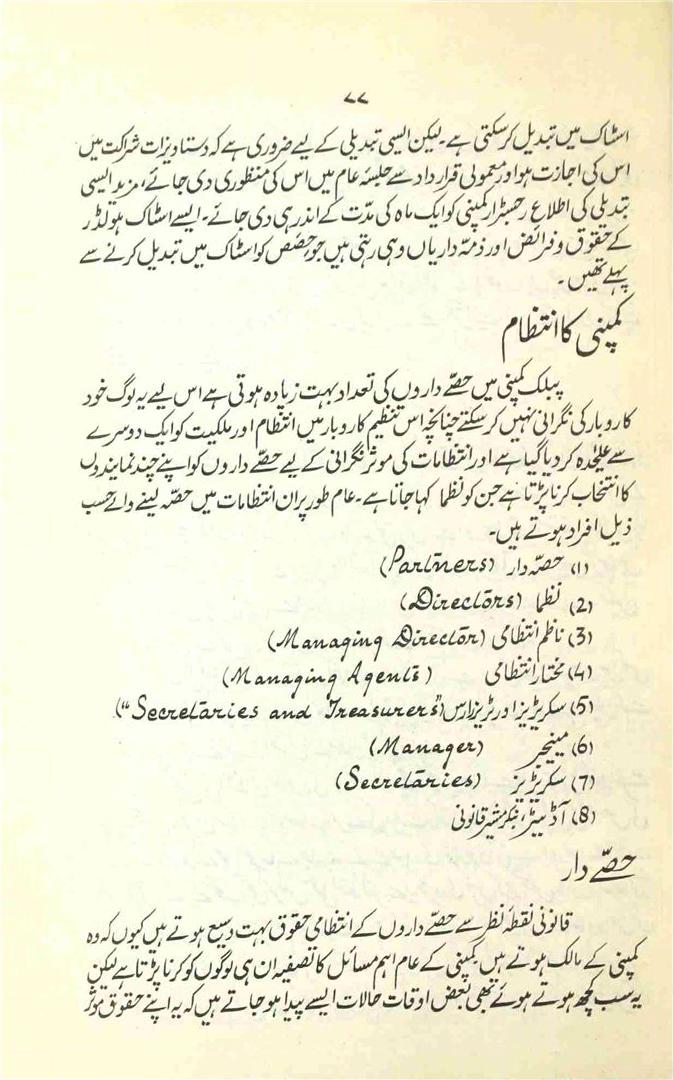 ۷۷
اسٹاک میں تبدیل کرسکتی ہے۔ لیکن ایسی تبدیلی کے لیے ضروری ہے کہ دستاویزات شراکت میں
اس کی اجازت ہو اور معمولی قرارداد سے جلسۂ عام میں اس کی منظوری دی جائے، مزید ایسی
تبدیلی کی اطلاع رجسٹرار کمپنی کو ایک ماہ کی مدّت کے اندر ہی دی جائے۔ ایسے اسٹاک ہولڈر
کے حقوق و فرائض اور ذمّہ داریاں وہی رہتی ہیں جو حصَص کو اسٹاک میں تبدیل کرنے سے
پہلے تھیں۔
کمپنی کا انتظام
پبلک کمپنی میں حصّے داروں کی تعداد بہت زیادہ ہوتی ہے اس لیے یہ لوگ خود
کاروبار کی نگرانی نہیں کرسکتے چنانچہ اس تنظیم کاروبار میں انتظام اور ملکیت کو ایک دوسرے
سے علیٰحدہ کر دیا گیا ہے اور انتظامات کی موثر نگرانی کے لیے حصّے داروں کو اپنے چند نمایندوں
کا انتخاب کرنا پڑتا ہے جن کو نظما کہا جاتا ہے۔ عام طور پر ان انتظامات میں حصّہ لینے والے حسب
ذیل افراد ہوتے ہیں۔
(1) حصّہ دار (Partners)
(2) نظما (Directors)
(3) ناظم انتظامی (Managing Director)
(4) مختار انتظامی (Managing Agents)
(5) سکریٹریز اور ٹریزرارس ("Secretaries and Treasurers")
(6) مینیجر (Manager)
(7) سکریٹریز (Secretaries)
(8) آڈیٹر، بنکر مشیر قانونی
حصّے دار
قانونی نقطۂ نظر سے حصّے داروں کے انتظامی حقوق بہت وسیع ہوتے ہیں کیوں کہ وہ
کمپنی کے مالک ہوتے ہیں۔ کمپنی کے عام اہم مسائل کا تصفیہ ان ہی لوگوں کو کرنا پڑتا ہے لیکن
یہ سب کچھ ہوتے ہوئے بھی بعض اوقات حالات ایسے پیدا ہو جاتے ہیں کہ یہ اپنے حقوق موثر